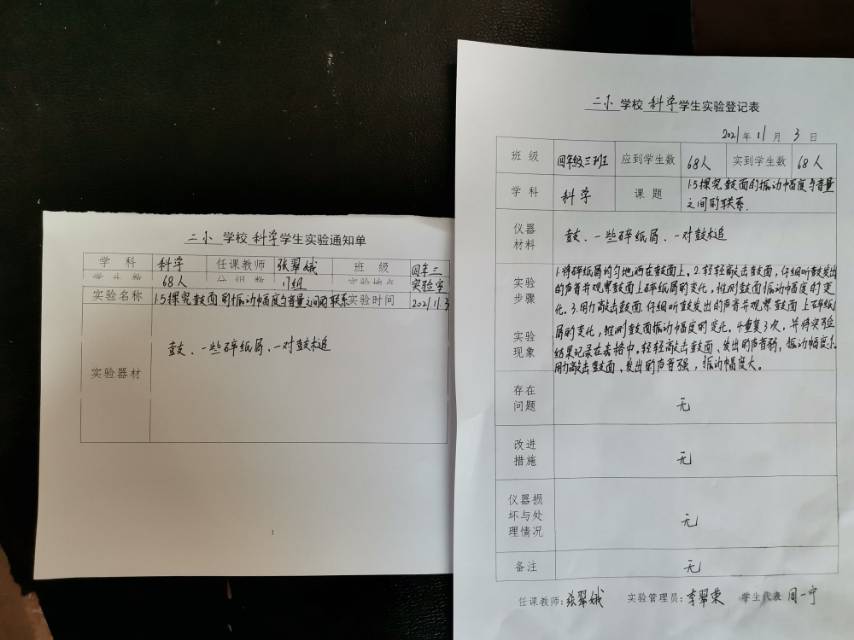 二小 学校 科学 学生实验通知单
学 科 科学 任课教师 张翠娥 班 级 四年三
学生数 68人 分组数 17组 实验地点 实验室
实验名称 1.5探究鼓面的振动幅度与音量之间的联系 实验时间 2021.11.3
实验器材 鼓、一些碎纸屑、一对鼓槌
二小 学校 科学 学生实验登记表
2021年 11月 3日
班 级 四年级三班 应到学生数 68人 实到学生数 68人
学 科 科学 课 题 1.5探究鼓面的振动幅度与音量
之间的联系.
仪器
材料
鼓、一些碎纸屑、一对鼓槌
实验
步骤
实验
现象
1.将碎纸屑均匀地洒在鼓面上,2.轻轻敲击鼓面,仔细听鼓发出
的声音并观察鼓面上碎纸屑的变化,推测鼓面振动幅度的变
化.3.用力敲击鼓面,仔细听鼓发出的声音并观察鼓面上碎纸
屑的变化,推测鼓面振动幅度的变化.4.重复3次,并将实验
结果记录在表格中.轻轻敲击鼓面、发出的声音弱,振动幅度小.
用力敲击鼓面、发出的声音强,振动幅度大。
存在
问题
无
改进
措施
无
仪器损
坏与处
理情况
无
备注 无
任课教师:张翠娥 实验管理员:李翠荣 学生代表 周一宁